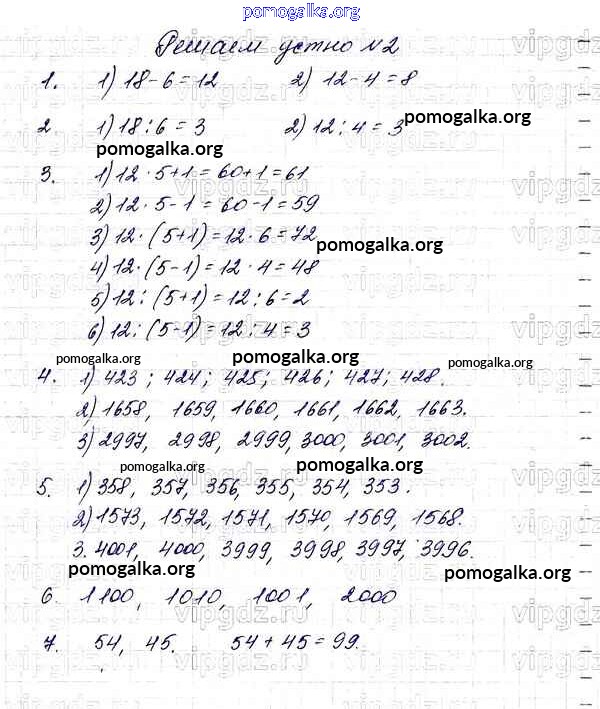 pomogalka.org
Решаем устно №2
1. 1) 18-6=12 2) 12-4=8
2 1) 18:6=3 2) 12:4=3
pomogalka.org pomogalka.org
3. 1) 12·5+1=60+1=61
2) 12·5-1=60-1=59
3) 12·(5+1)=12·6=72
pomogalka.org
4) 12·(5-1)=12·4=48
5) 12:(5+1)=12:6=2
6) 12:(5-1)=12:4=3
pomogalka.org pomogalka.org pomogalka.org
4. 1) 423; 424; 425; 426; 427; 428.
2) 1658, 1659, 1660, 1661, 1662, 1663.
3) 2997, 2998, 2999, 3000, 3001, 3002.
pomogalka.org pomogalka.org
5. 1) 358, 357, 356, 355, 354, 353.
2) 1573, 1572, 1571, 1570, 1569, 1568.
3. 4001, 4000, 3999, 3998, 3997, 3996.
pomogalka.org pomogalka.org
6. 1100, 1010, 1001, 2000
7. 54, 45. 54+45=99.